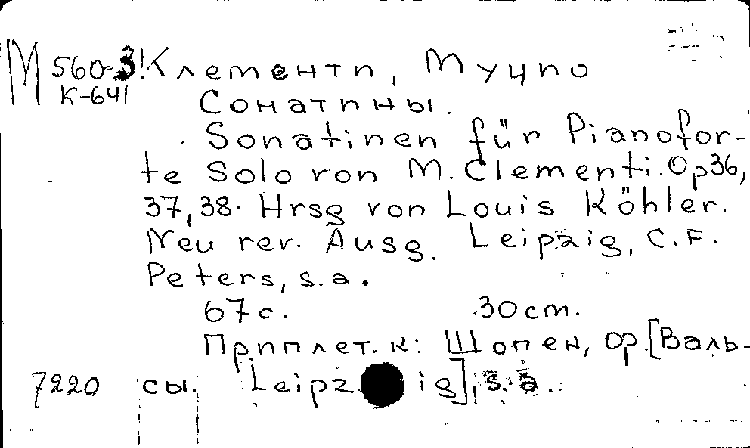 М 560-3! Клементи, Муцио
К-641
Сонатины.
Sonatinen für Pianofor-
te Solo von M. Clementi. Op 36,
37, 38. Hrsg von Louis Köhler.
Neu rev. Ausg. Leipzig, C.F.
Peters, s.a.
67 с. 30 cm.
Приплет. к: Шопен, Фр. [Валь-
7220 сы. Leipzig], s.a.